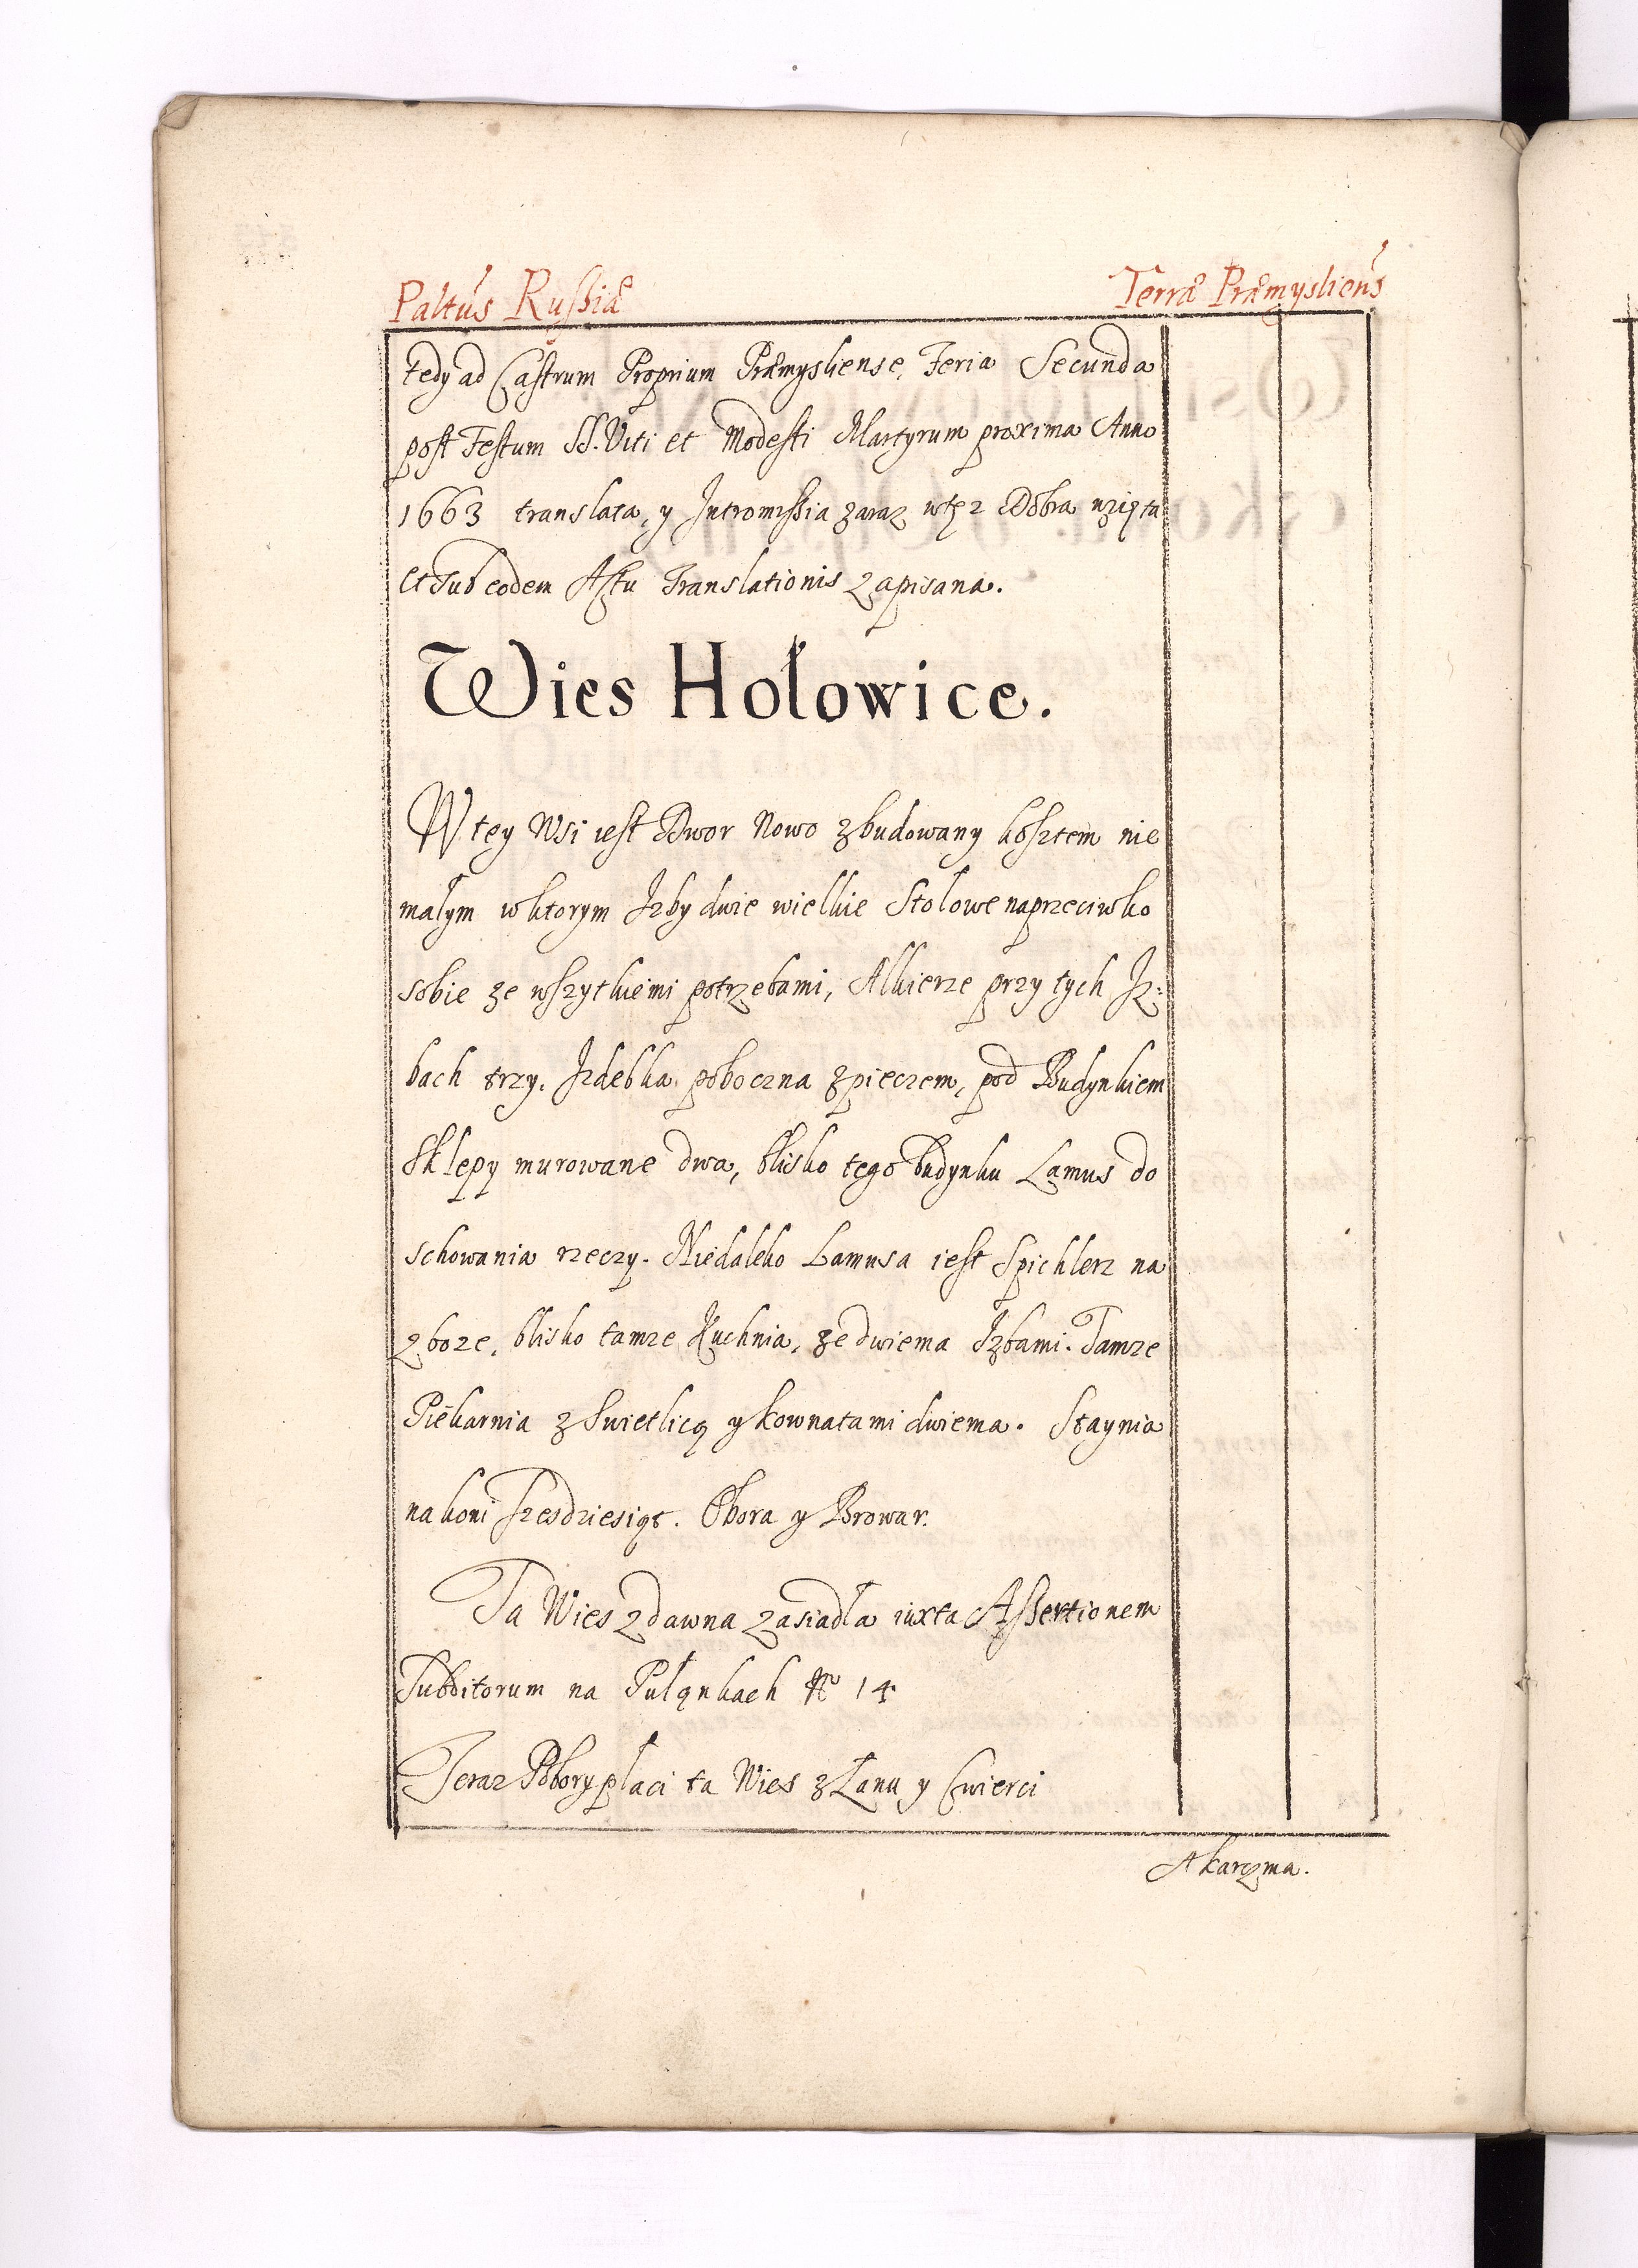 Paltus Russiæ
Terræ Præmysliens
tedy ad Castrum Proprium Præmysliense, Feria Secunda
post Festum SS. Viti et Modesti Martyrum proxima Anno
1663 translata, y Intromissia zaraz wtęz Dobra wzięta
et sub eodem Actu Translationis zapisana.
Wies Hołowice.
W tey Wsi iest Dwor Nowo zbudowany kosztem nie
małym wktorym Izby dwie wielkie Stolowe naprzeciwko
sobie ze wszytkiemi potrzebami, Alkierze przy tych Iz:
bach trzy. Izdebka poboczna zpieczem, pod Budynkiem
Sklepy murowane dwa, blisko tego budynku Lamus do
schowania rzeczy. Niedaleko Lamusa iest Spichlerz na
zboze, blisko tamze Kuchnia, ze dwiema Izbami. Tamze
Piekarnia z Swietlicą y kownatami dwiema. Staynia
na koni szesdziesiąt. Obora y Browar.
Ta Wies zdawna zasiadła iuxta Assertionem
Subditorum na Pułąnkach No 14
Teraz Pobory płaci ta Wies z Łanu y Cwierci
A karczma.